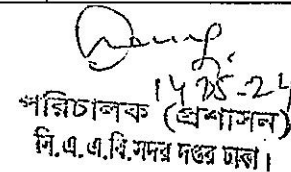 14.05.24
পরিচালক (প্রশাসন)
সি.এ.এ.বি.সদর দপ্তর ঢাকা।